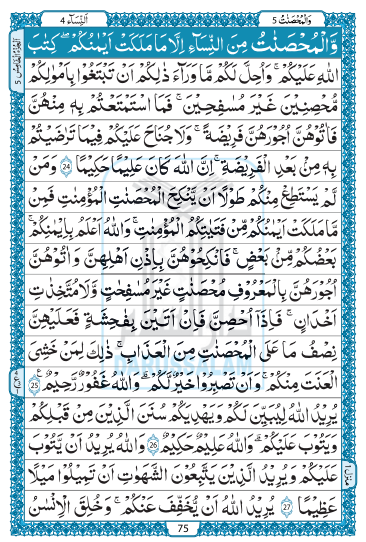 وَالْمُحْصَنٰتُ 5
اَلنِّسَآء 4
وَّالْمُحْصَنٰتُ مِنَ النِّسَآءِ اِلَّا مَا مَلَكَتْ اَيْمَانُكُمْ ۚ كِتٰبَ
اللّٰهِ عَلَيْكُمْ ۚ وَاُحِلَّ لَكُمْ مَّا وَرَآءَ ذٰلِكُمْ اَنْ تَبْتَغُوْا بِاَمْوَالِكُمْ
مُّحْصِنِيْنَ غَيْرَ مُسٰفِحِيْنَ ؕ فَمَا اسْتَمْتَعْتُمْ بِهٖ مِنْهُنَّ
فَاٰتُوْهُنَّ اُجُوْرَهُنَّ فَرِيْضَةً ؕ وَلَا جُنَاحَ عَلَيْكُمْ فِيْمَا تَرٰضَيْتُمْ
بِهٖ مِنْۢ بَعْدِ الْفَرِيْضَةِ ؕ اِنَّ اللّٰهَ كَانَ عَلِيْمًا حَكِيْمًا 24 وَمَنْ
لَّمْ يَسْتَطِعْ مِنْكُمْ طَوْلًا اَنْ يَّنْكِحَ الْمُحْصَنٰتِ الْمُؤْمِنٰتِ فَمِنْ
مَّا مَلَكَتْ اَيْمَانُكُمْ مِّنْ فَتَيٰتِكُمُ الْمُؤْمِنٰتِ ؕ وَاللّٰهُ اَعْلَمُ بِاِيْمَانِكُمْ ؕ
بَعْضُكُمْ مِّنْۢ بَعْضٍ ۚ فَانْكِحُوْهُنَّ بِاِذْنِ اَهْلِهِنَّ وَاٰتُوْهُنَّ
اُجُوْرَهُنَّ بِالْمَعْرُوْفِ مُحْصَنٰتٍ غَيْرَ مُسٰفِحٰتٍ وَّلَا مُتَّخِذٰتِ
اَخْدَانٍ ۚ فَاِذَآ اُحْصِنَّ فَاِنْ اَتَيْنَ بِفَاحِشَةٍ فَعَلَيْهِنَّ
نِصْفُ مَا عَلَى الْمُحْصَنٰتِ مِنَ الْعَذَابِ ؕ ذٰلِكَ لِمَنْ خَشِيَ
الْعَنَتَ مِنْكُمْ ؕ وَاَنْ تَصْبِرُوْا خَيْرٌ لَّكُمْ ؕ وَاللّٰهُ غَفُوْرٌ رَّحِيْمٌ 25
يُرِيْدُ اللّٰهُ لِيُبَيِّنَ لَكُمْ وَيَهْدِيَكُمْ سُنَنَ الَّذِيْنَ مِنْ قَبْلِكُمْ
وَيَتُوْبَ عَلَيْكُمْ ؕ وَاللّٰهُ عَلِيْمٌ حَكِيْمٌ 26 وَاللّٰهُ يُرِيْدُ اَنْ يَّتُوْبَ
عَلَيْكُمْ وَيُرِيْدُ الَّذِيْنَ يَتَّبِعُوْنَ الشَّهَوٰتِ اَنْ تَمِيْلُوْا مَيْلًا
عَظِيْمًا 27 يُرِيْدُ اللّٰهُ اَنْ يُّخَفِّفَ عَنْكُمْ ۚ وَخُلِقَ الْاِنْسَانُ
75
الجزء الخامس 5
DARUSSALAM